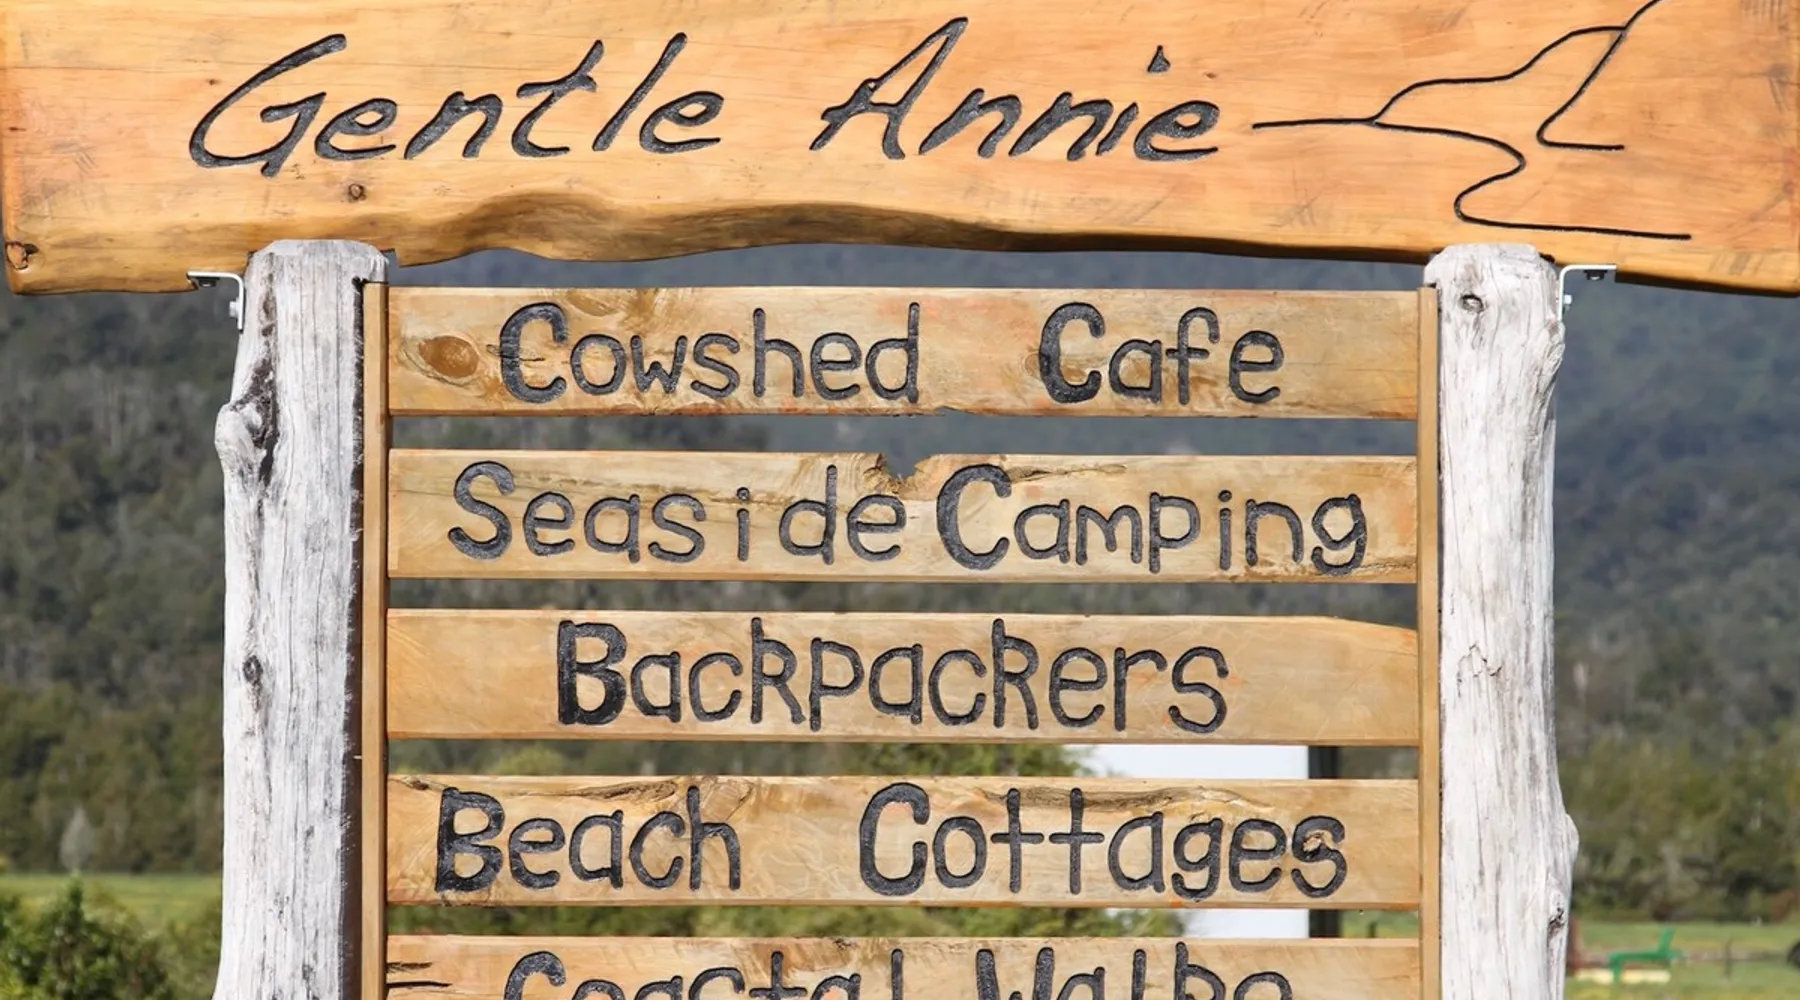 Gentle Annie
Cowshed Cafe
Seaside Camping
Backpackers
Beach Cottages
Coastal Walks